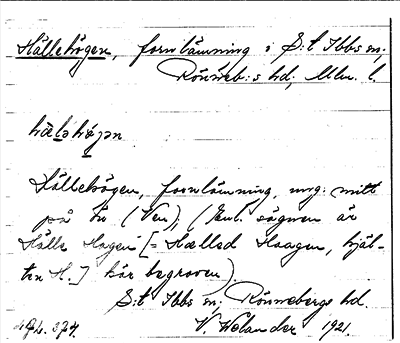 Hällehögen, fornlämning i S:t Ibbs sn,
Rönneb:s hd, Mlm. l.
Hällehögen, fornlämning, ung. mitt
på ön (Ven), (Enl. sägnen är
Hälle Hagen [= Hælled Haagen, hjäl-
ten H.] här begraven)
S:t Ibbs sn. Rönnebergs hd.
V. Welander 1921.